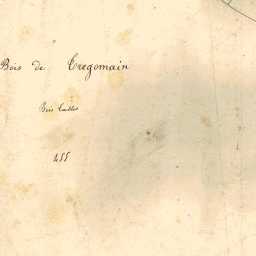 Bois de Tregomain
Bois Taillis
455